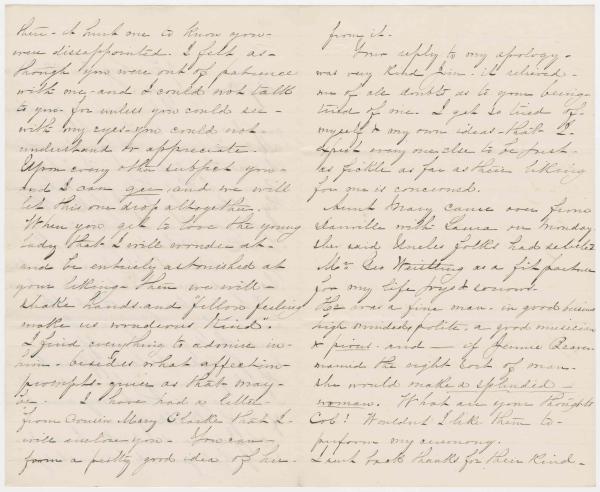 then - it hurt me to know you -
were dissappointed. I felt as -
though you were out of patience
with me, and I could not talk
to you - for unless you could see -
with my eyes - you could not -
understand or appreciate.
Upon every other subject you -
and I can gee, and we will
let this one drop altogether.
When you get to love the young
lady that I will wonder at -
and be entirely astonished at
your liking - then we will -
shake hands and "fellow feeling
make us wondrous kind".
I find everything to admire in -
- besides what affection -
prompts - queer as that may -
be - I have had a letter -
from Cousin Mary Clarke that I -
will inclose you - You can -
form a pretty good idea of her -
from it -
Your reply to my apology -
was very kind Jim - it relieved -
me of all doubts as to your being -
tired of me. I get so tired of -
myself & my own ideas - that I -
expect every one else to be just -
as fickle as far as their liking
for me is concerned.
Aunt Mary came over from
Danville with Laura on monday
She said Uncles folks had selected
Mr Geo as a fit partner
for my life joys & sorrows.
He was a fine man - in good business
high minded, polite, a good musician
& pious - and - if Jennie
married the right sort of man -
she would make a splendid -
woman. What are your thoughts
Col? Wouldn't I like them to -
perform my ceremony.
I sent back thanks for their kind -